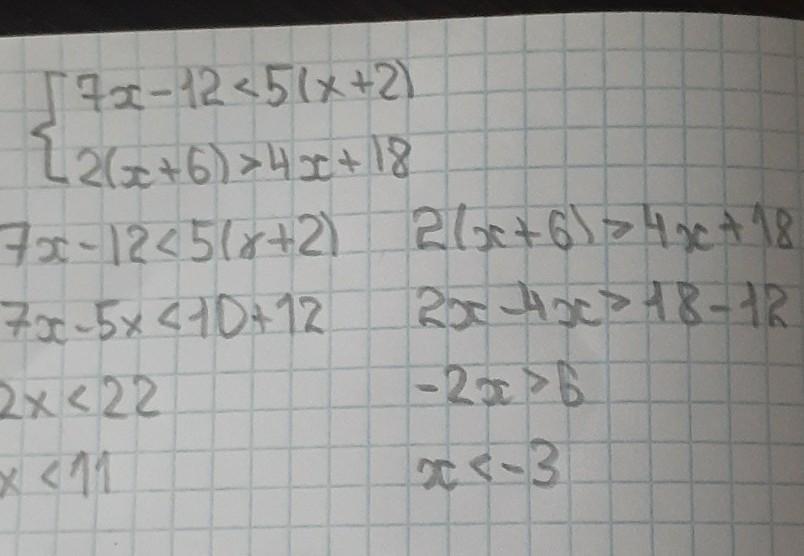 7x-12<5(x+2)
2(x+6)>4x+18
7x-12<5(x+2) 2(x+6)>4x+18
7x-5x<10+12 2x-4x>18-12
2x<22 -2x>6
x<11 x<-3